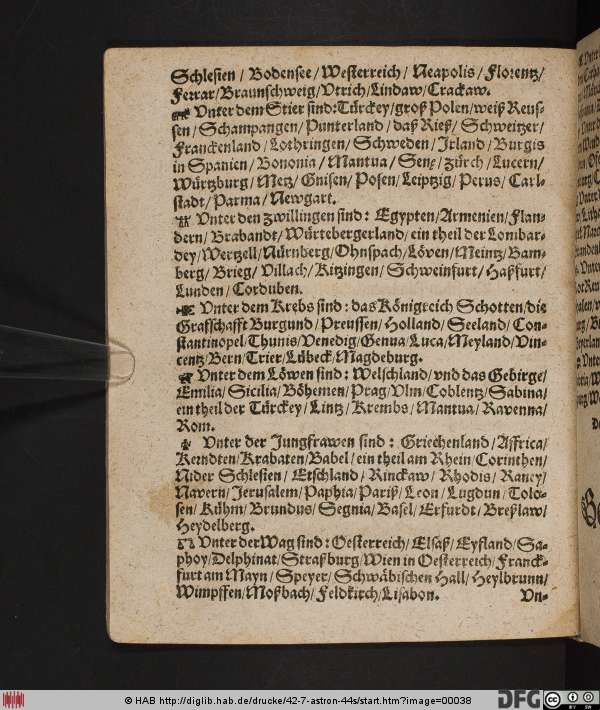 Schlesien / Bodensee / Westerreich / Neapolis / Florentz /
Ferrar / Braunschweig / Vtrich / Lindaw / Crackaw.
Vnter dem Stier sind: Türckey / groß Polen / weiß Reus-
sen / Schampangen / Punterland / daß Rieß / Schweitzer /
Franckenland / Lothringen / Schweden / Irland / Burgis
in Spanien / Bononia / Mantua / Sene / Zürch / Lucern /
Würtzburg / Metz / Gnisen / Posen / Leiptzig / Perus / Carl-
stadt / Parma / Newgart.
Vnter den Zwillingen sind: Egypten / Armenien / Flan-
dern / Brabandt / Würtebergerland / ein theil der Lombar-
dey / Wertzell / Nürnberg / Ohnspach / Löven / Meintz / Bam-
berg / Brieg / Villach / Kitzingen / Schweinfurt / Haßfurt /
Lunden / Corduben.
Vnter dem Krebs sind: das Königreich Schotten / die
Grafschafft Burgund / Preussen / Holland / Seeland / Con-
stantinopel / Thunis / Venedig / Genua / Luca / Meyland / Vin-
centz / Bern / Trier / Lübeck / Magdeburg.
Vnter dem Löwen sind: Welschland / vnd das Gebirge /
Emilia / Sicilia / Böhemen / Prag / Vlm / Coblentz / Sabina /
ein theil der Türckey / Lintz / Krembs / Mantua / Ravenna /
Rom.
Vnter der Jungfrawen sind: Griechenland / Affrica /
Kerndten / Krabaten / Babel / ein theil am Rhein / Corinthen /
Nider Schlesien / Etschland / Rinckaw / Rhodis / Rancy /
Navern / Jerusalem / Paphia / Pariß / Leon / Lugdun / Tolo-
sen / Kühm / Brundus / Segnia / Basel / Erfurdt / Breßlaw /
Heydelberg.
Vnter der Wag sind: Oesterreich / Elsaß / Eyfland / Sa-
phoy / Delphinat / Straßburg / Wien in Oesterreich / Franck-
furt am Mayn / Speyer / Schwäbischen Hall / Heylbrunn /
Wimpffen / Moßbach / Feldkirch / Lisabon.
Vn-
© HAB http://diglib.hab.de/drucke/42-7-astron-44s/start.htm?image=00038
DFG
CC BY SA